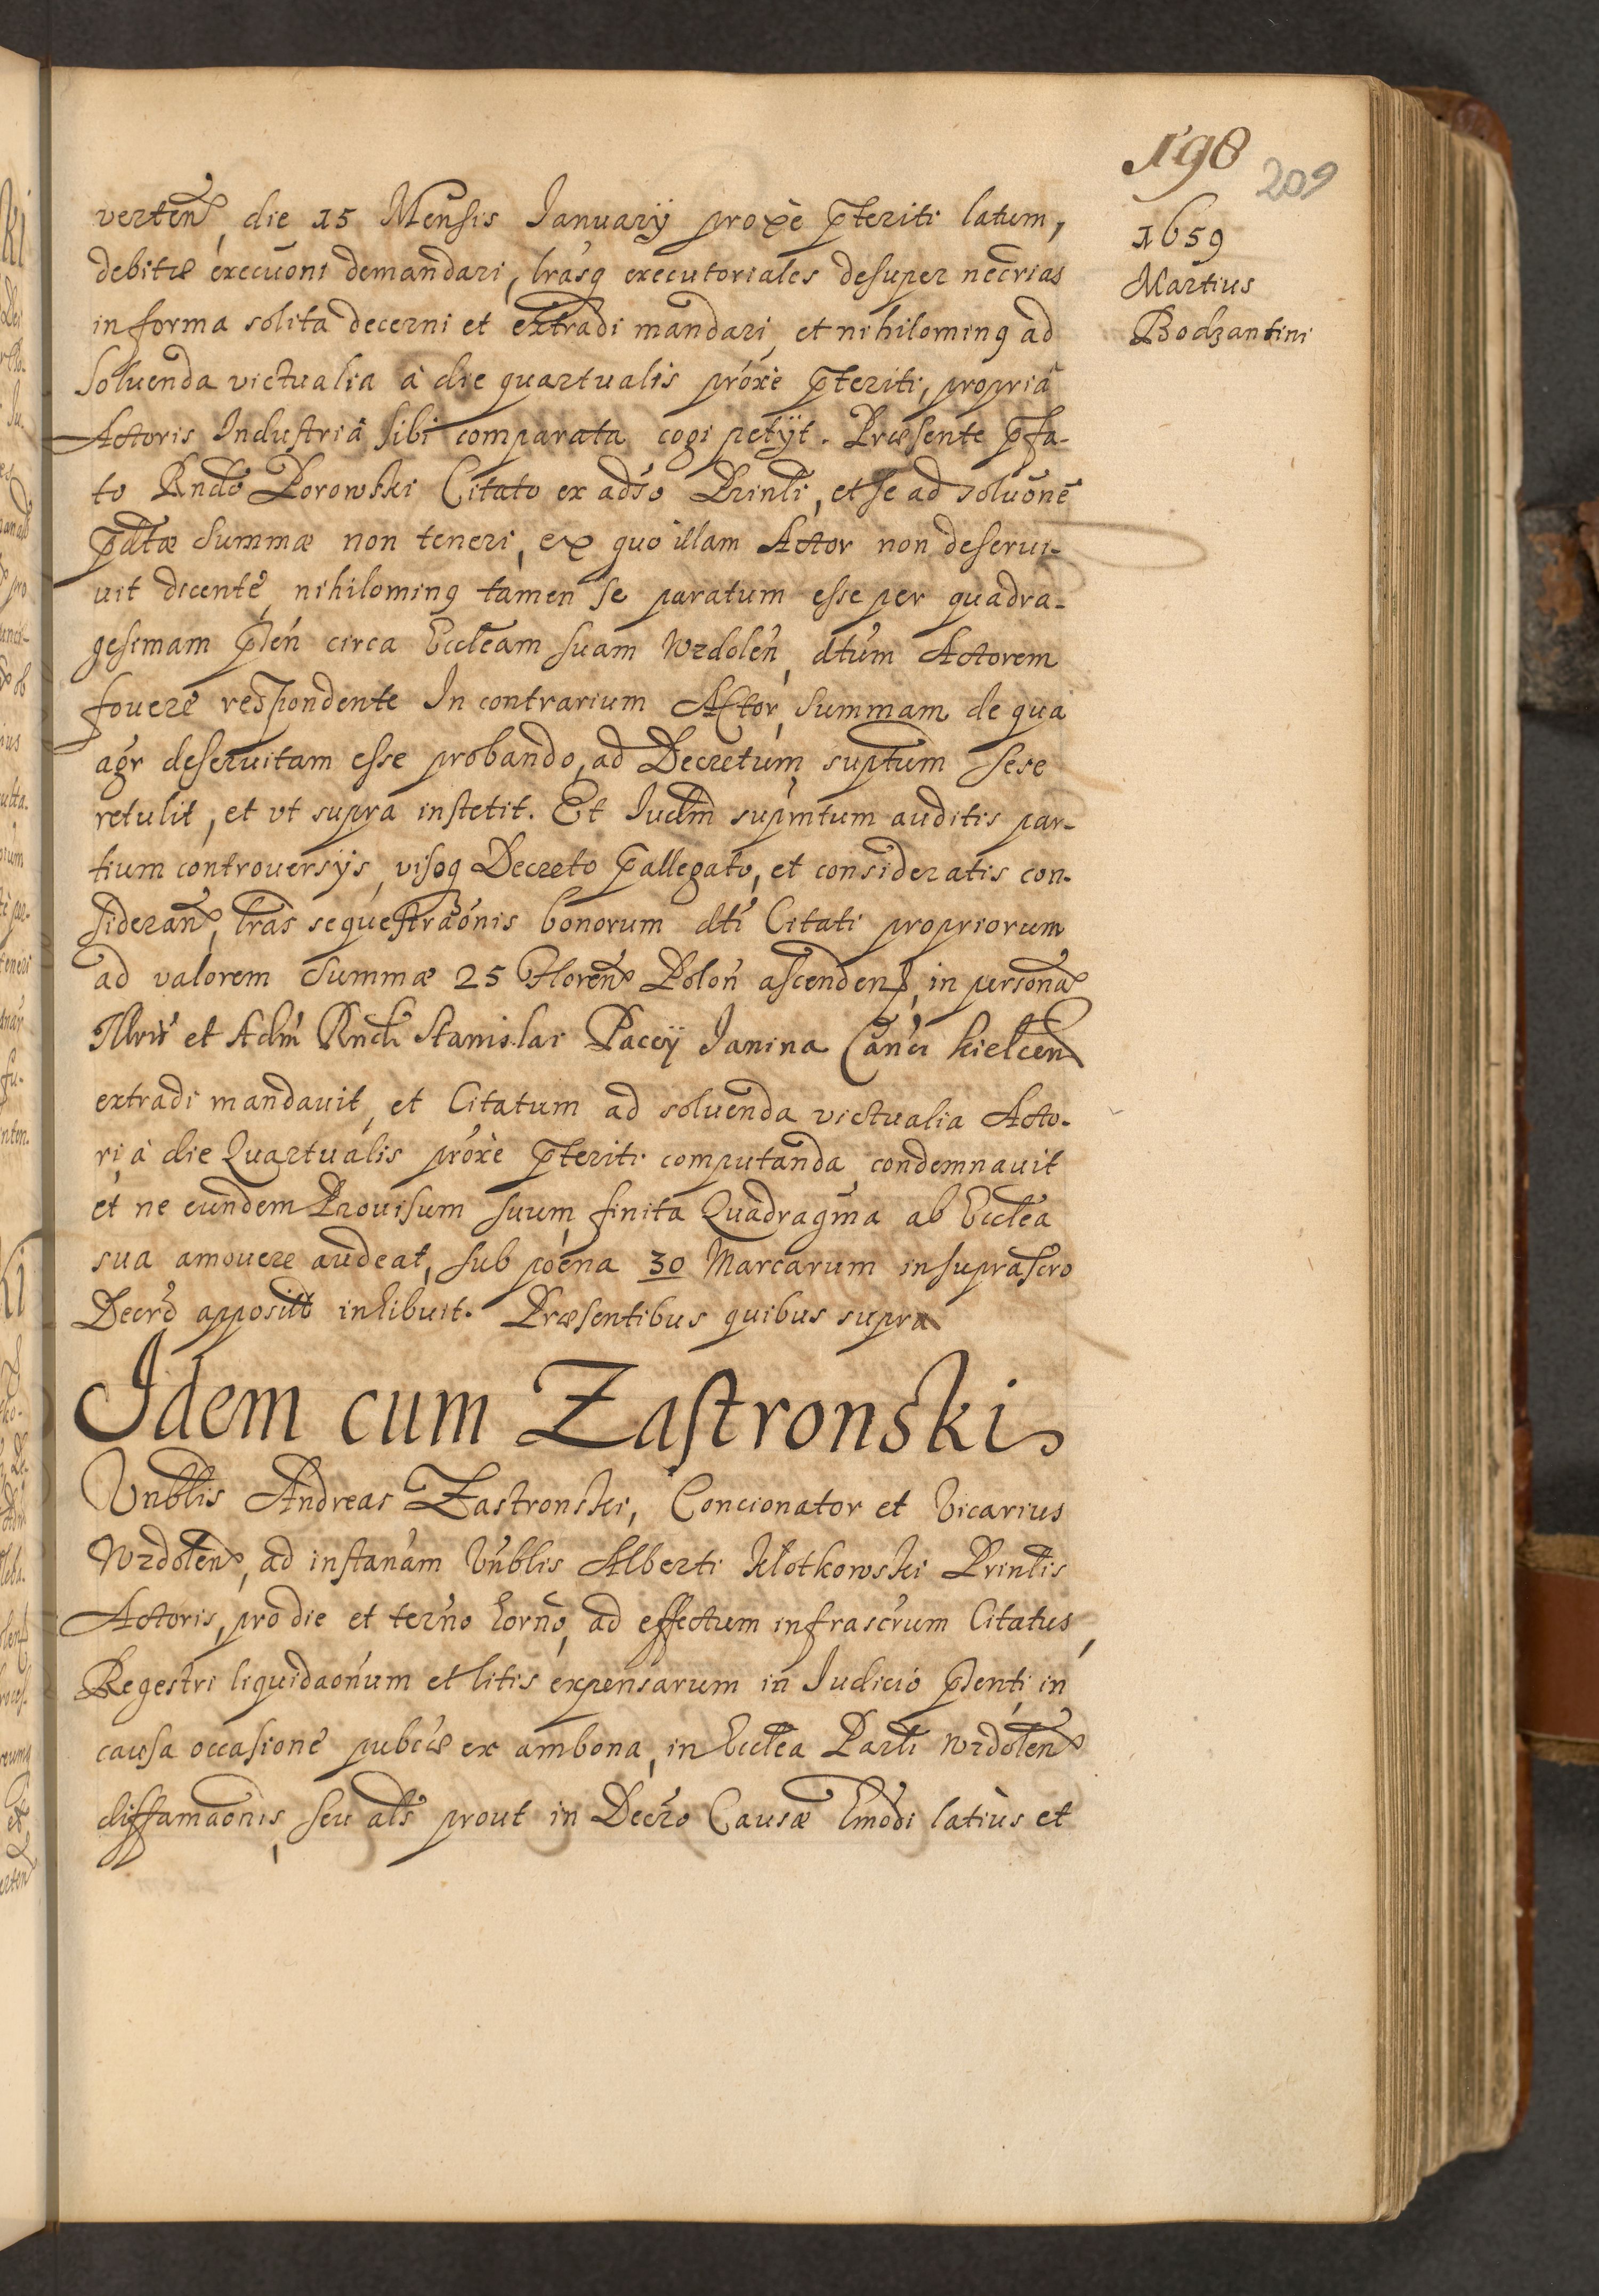 198
209
1659
Martius
Bodzantini
verten, die 15 Mensis Januarÿ proxè p̄teriti latum,
debitæ execuōni demandari, lrāsq executoriales desuper necrias
in forma solita decerni et extradi mandari, et nihilominq ad
soluenda victualia à die quartualis próxè p̄teriti, propriâ
Actoris Industriâ sibi comparata cogi petÿt. Præsente p̄fa-
to Rndō Porowski Citato ex adsō Prinli, et se ad soluōnē
p̄dtæ summæ non teneri, ex quo illam Actor non deserui-
uit dicente, nihilominq tamen se paratum esse per quadra-
gesimam p̄sen circa Eccleam suam Wzdolen, dtum Actorem
fouere respondente In contrarium Actor, summam de qua
agr deseruitam esse probando, ad Decretum suptum sese
retulit, et vt supra institit. Et Judm supmtum auditis par-
tium controuersÿs, visoq Decreto p̄allegato, et consideratis con-
sideran, lrās sequestraōnis bonorum dti Citati propriorum
ad valorem summæ 25 Floren Polon ascenden, in persona
Illris et Adm Rndi Stanislai Pacÿ Janina Canci kielcen
extradi mandauit, et Citatum ad soluenda victualia Acto-
ri, à die Quartualis próxè p̄teriti computanda, condemnauit
et ne eundem Prouisum suum, finita Quadragma ab Ecclea
sua amouere audeat, sub poena 30 Marcarum in suprascro
Decrō apposit inhibuit. Præsentibus quibus supra
Idem cum Zastronski
Vnblis Andreas Zastronski, Concionator et Vicarius
Wzdolen, ad instanam Vnblis Alberti Kłotkowski Prinlis
Actoris, pro die et terno horno, ad effectum infrascrum Citatus,
Regestri liquidaonum et litis expensarum in Judicio p̄senti, in
causa occasione pubcæ ex ambona, in Ecclea Parli Wzdolen
diffamaonis, seu als prout in Decro Causæ hmodi latiùs et